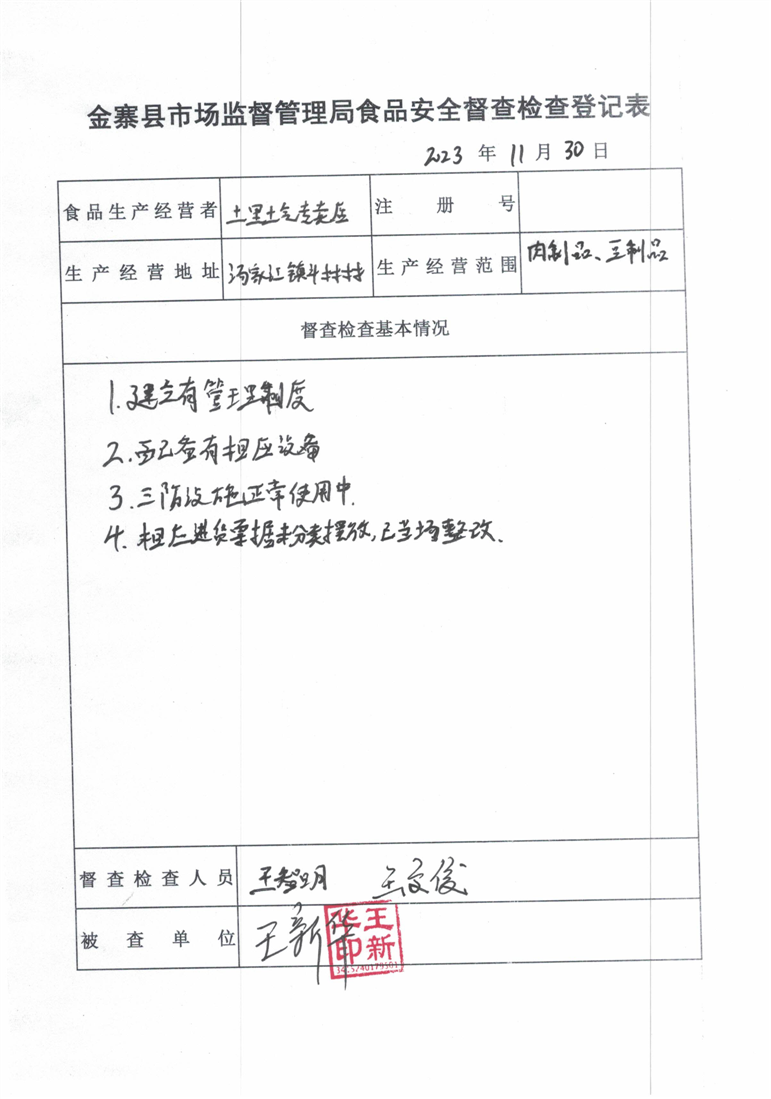 金寨县市场监督管理局食品安全督查检查登记表
2023 年 11 月 30 日
食品生产经营者 土里土气专卖店 注册号
生产经营地址 汤家汇镇斗林村 生产经营范围 肉制品、豆制品
督查检查基本情况
1.建立有管理制度
2.配备有相应设备
3.三防设施正常使用中.
4.相应进货票据未分类摆放,已当场整改.
督查检查人员 王智明 王文俊
被查单位 王新华
王新华印